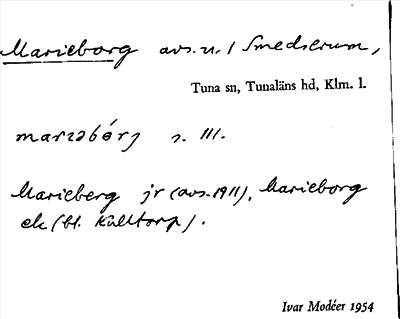 Marieborg avs. u. / Smedserum,
Tuna sn, Tunaläns hd, Klm. l.
s. III.
Marieberg jr (avs. 1911), Marieborg
ek (bl. Kulltorp).
Ivar Modéer 1954